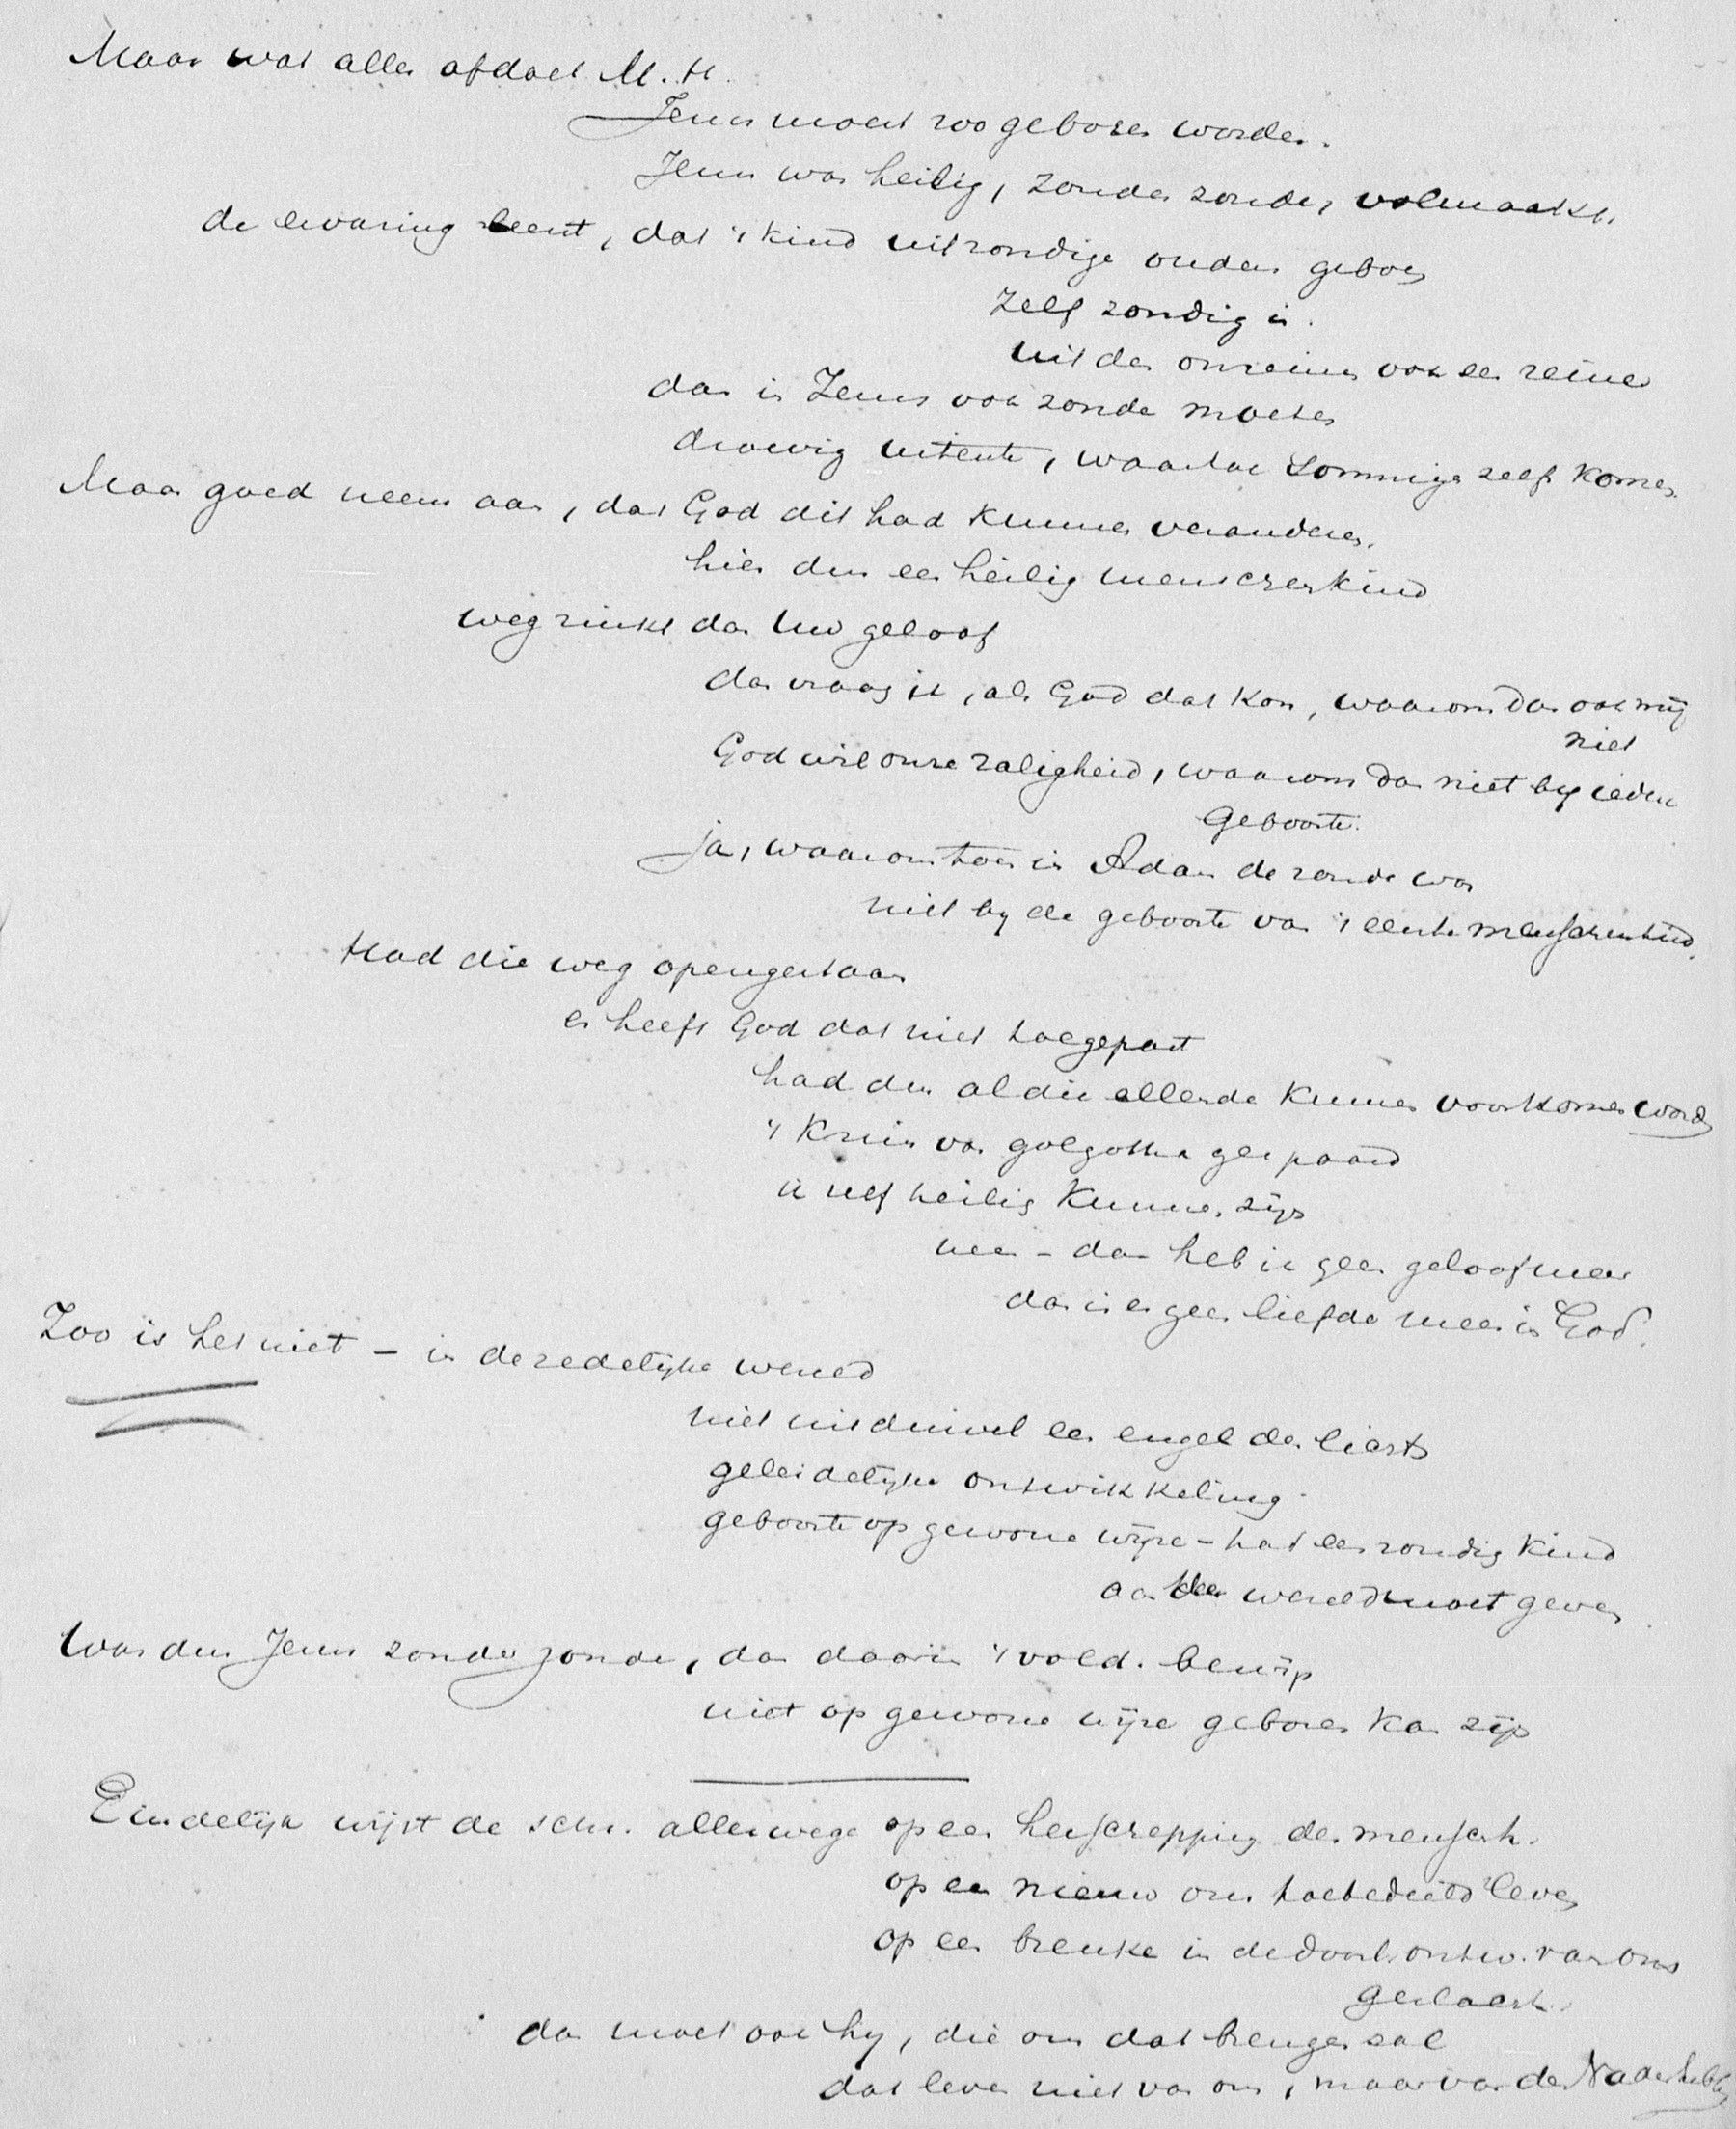 Maar wat alles afdoet M. H.
Jezus moest zoo geboren worden.
Jezus was heilig, zonder zonde, volmaakt.
de ervaring leert, dat 't kind uit zondige ouders geboren
zelf zondig is.
uit den onreinen ook een reine
dan is Jezus ook zonde moeten
droevig uiterste, waartoe sommigen zelfs komen.
Maar goed neem aan, dat God dit had kunnen veranderen.
hier dus een heilig menschenkind
weg zinkt dan Uw geloof
dan vraag ik, als God dat kon, waarom dan ook mij
niet
God wil onze zaligheid, waarom dan niet by iedere
geboorte.
ja, waarom toen in Adam de zonde was
niet by de geboorte van 't eerste menschenkind.
Had die weg opengestaan
en heeft God dat niet toegepast
had dus al die ellende kunnen voorkomen worden
't Kruis van golgotha gespaard
ik zelf heilig kunnen zijn
neen - dan heb ik geen geloof meer
dan is er geen liefde meer in God.
Zoo is het niet - in de zedelijke wereld
niet uit duivel een engel des lichts
geleidelijke ontwikkeling.
geboorte op gewone wijze - had een zondig kind
aan de wereld moet geven
Was dus Jezus zonder zonde, dan daarin 't vold. bewijs
niet op gewone wijze geboren kan zijn
Eindelijk wijst de schr. allerwege op een herschepping der mensch.
op een nieuw ons toebedeeld leven
op een breuke in de doorl. ontw. van ons
geslacht.
dan moet ook hy, die ons dat brengen zal
dat leven niet van ons, maar van den Vader hebben